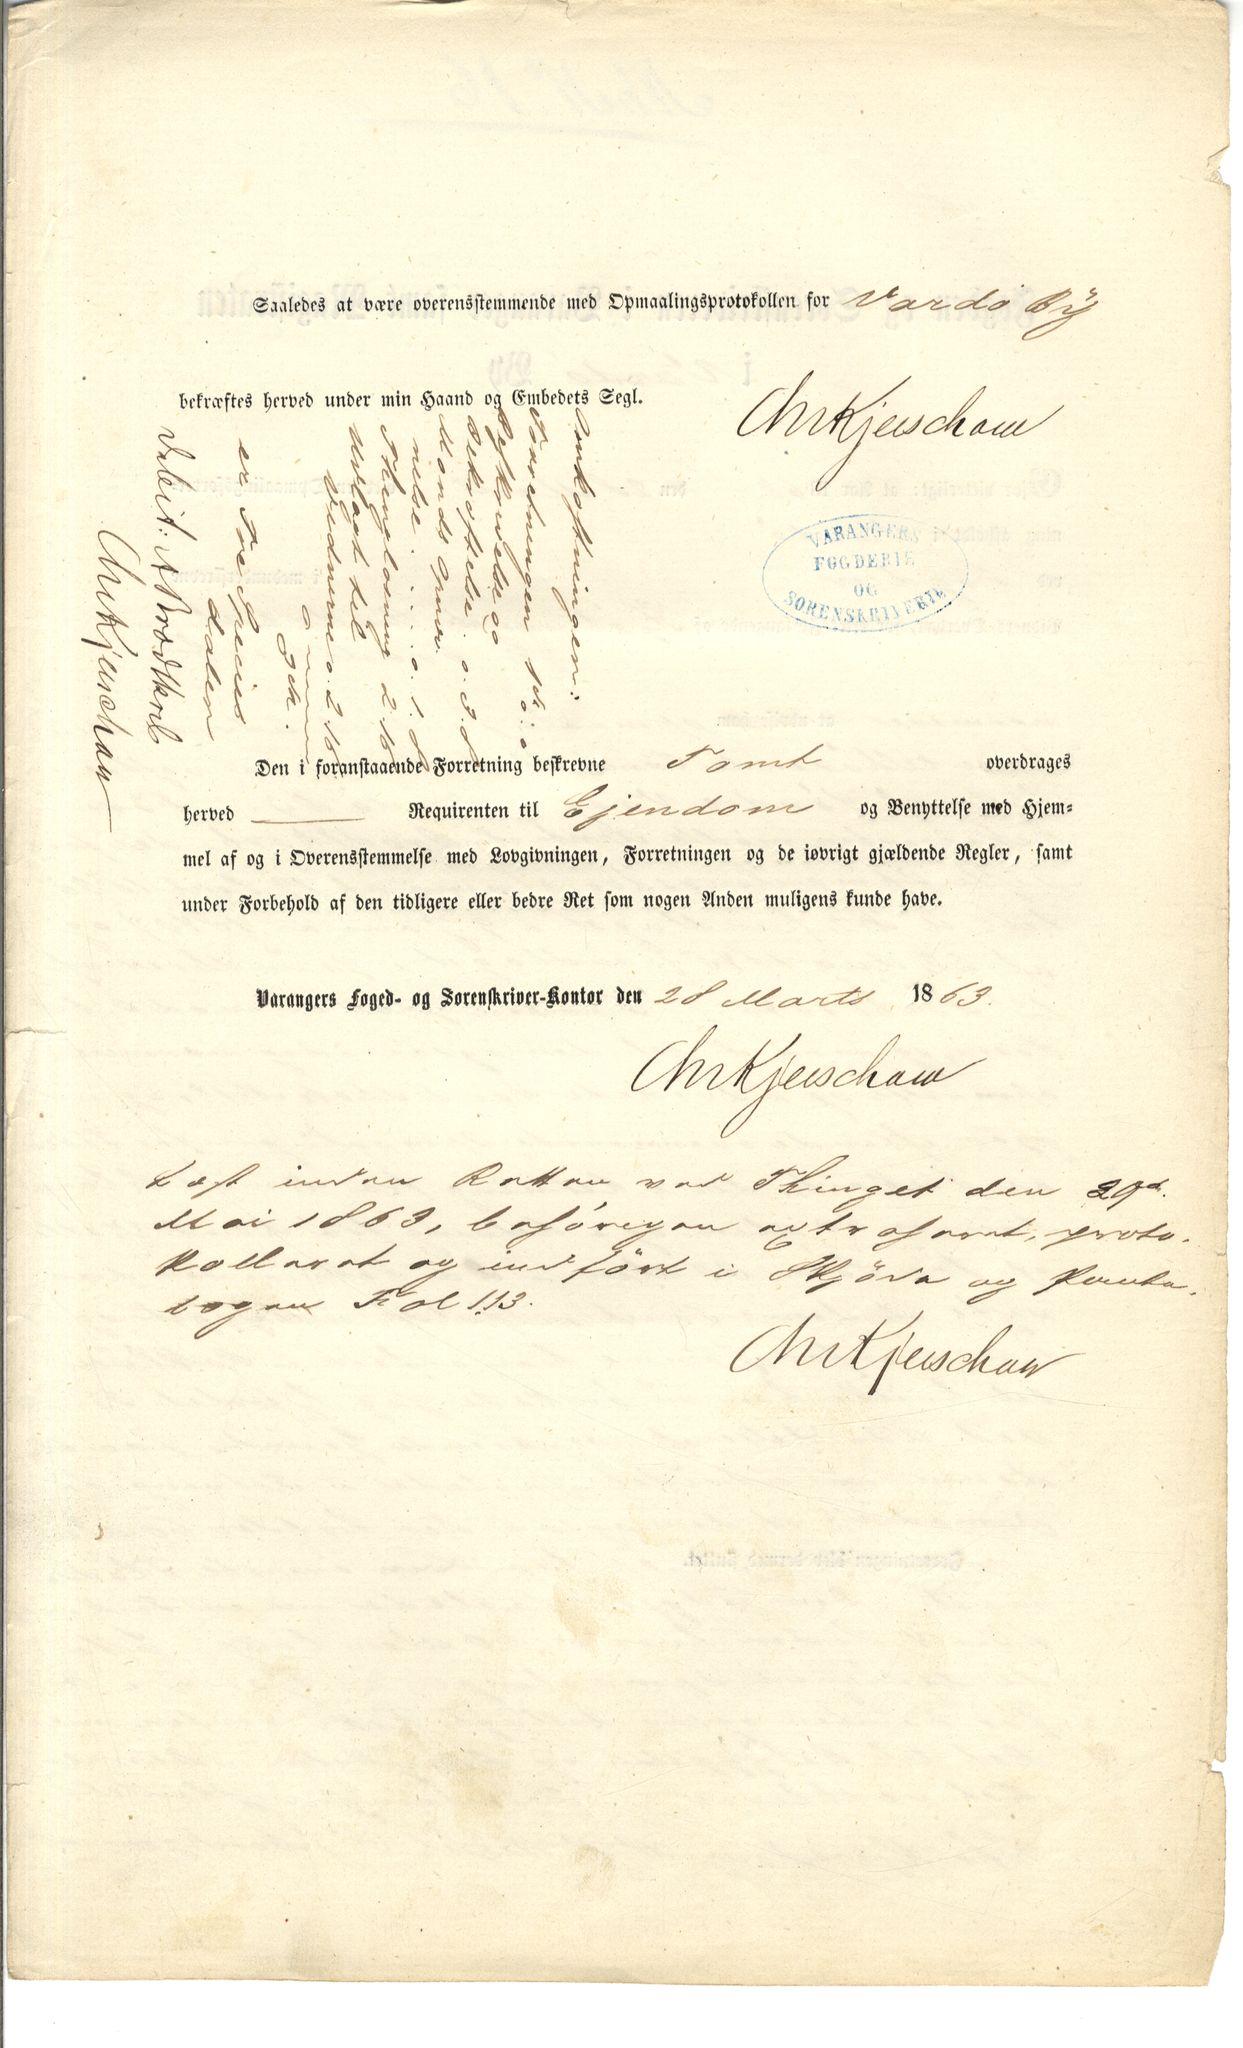 Saaledes at være overensstemmende med Opmaalingsprotokollen for Vardö By
bekræftes herved under min Haand og Embedets Segl.
Chr Kjerschow
VARANGERS
FOGDERIE
OG
SORENSKRIVERIE
Omkostningen:
Forretningen 1
Beskrivelse og
Bekræftelse . 0. 3. 8
Mænds
nelse . . . . 0. 1. 8
Thinglæsning 2. 16
Udlagt til
Vidnerne 0. 2. 16
er
dalen
Valeit: A Brodtkorb
Chr Kjerschow
Den i foranstaaende Forretning beskrevne Tomt overdrages
herved Requirenten til Ejendom og Benyttelse med Hjem-
mel af og i Overensstemmelse med Lovgivningen, Forretningen og de iøvrigt gjældende Regler, samt
under Forbehold af den tidligere eller bedre Ret som nogen Anden muligens kunde have.
Varangers Foged- og Sorenskriver-Kontor den 28 Marts 1863.
Chr Kjerschow
Læst inden Retten ved Thinget den 29d
Mai 1863, besörgen extraheret, proto-
kolleret og indfört i Skjöde og Pante-
bogen Fol 113.
Chr Kjerschow
Forretningen blev dermed sluttet.